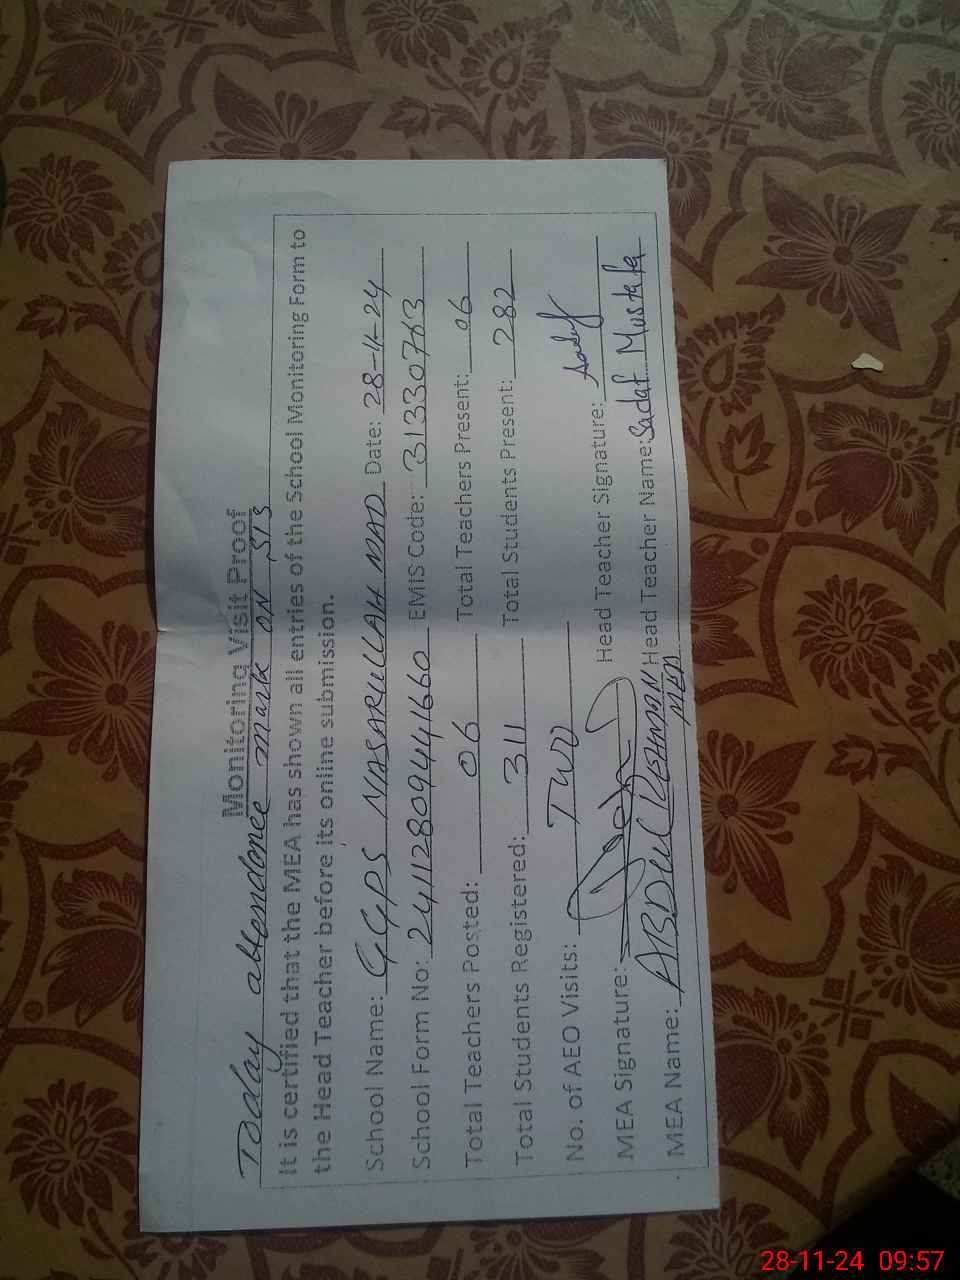 Monitoring Visit Proof
Today attendance mark ON SIS
It is certified that the MEA has shown all entries of the School Monitoring Form to
the Head Teacher before its online submission.
School Name: GGPS NASARULLAH MAD Date: 28-11-24
School Form No: 241128094441660 EMIS Code: 31330763
Total Teachers Posted: 06 Total Teachers Present: 06
Total Students Registered: 311 Total Students Present: 282
No. of AEO Visits: TWO
MEA Signature: Head Teacher Signature: Sadaf
MEA Name: ABDUL REHMAN Head Teacher Name: Sadaf Mustafa
MEA
28-11-24 09:57